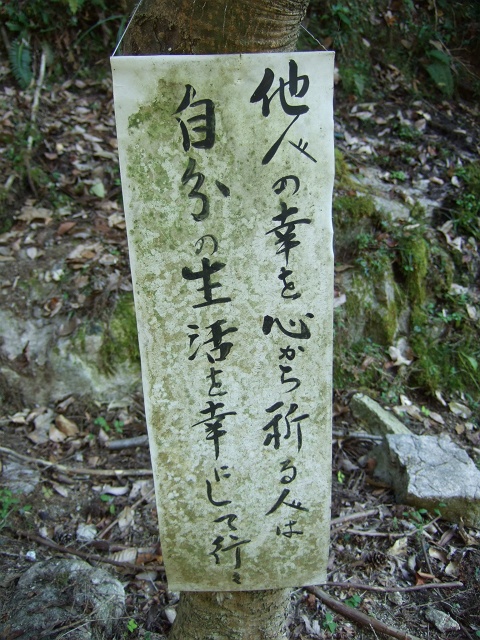 他人の幸を心から祈る人は
自分の生活を幸にして行く